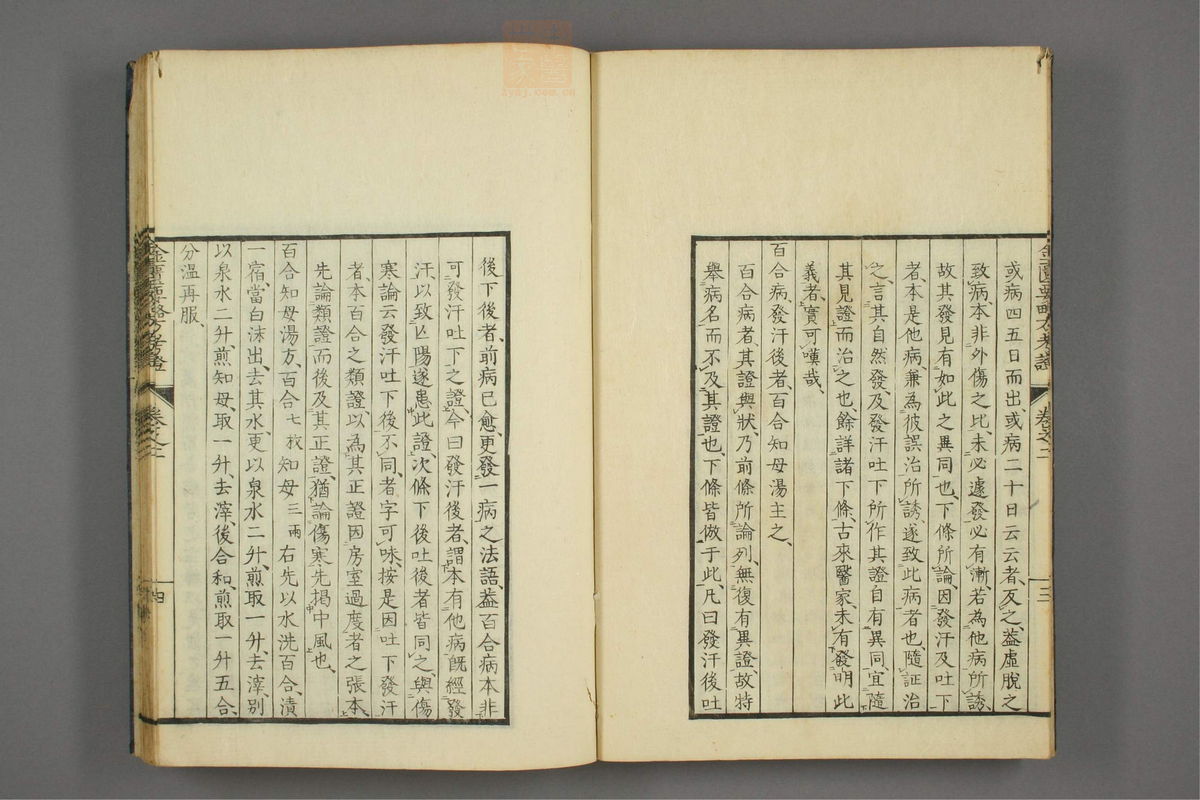 或病四五日而出或病二十日云云者反之蓋虛脫之
致病本非外傷之比未必遽發必有漸若為他病所誘
故其發見有如此之異同也下條所論因發汗及吐下
者本是他病兼為彼誤治所誘遂致此病者也隨証治
之言其自然發及發汗吐下所作其證自有異同宜隨
其見證而治之也餘詳諸下條古來醫家未有發明此
義者實可嘆哉
百合病發汗後者百合知母湯主之
百合病者其證與狀乃前條所論列無復有異證故特
舉病名而不及其證也下條皆倣于此凡曰發汗後吐
三
後下後者前病已愈更發一病之法語蓋百合病本非
可發汗吐下之證今曰發汗後者謂本有他病既經發
汗以致亡陽遂患此證次條下後吐後者皆同之與傷
寒論云發汗吐下後不同者字可味按是因吐下發汗
者本百合之類證以為其正證因房室過度者之張本
先論類證而後及其正證猶論傷寒先揭中風也
百合知母湯方百合七枚知母三兩右先以水洗百合漬
一宿當白沫出去其水更以泉水二升煎取一升去滓別
以泉水二升煎知母取一升去滓後合和煎取一升五合
分溫再服
金匱要略方考證
卷之二
四